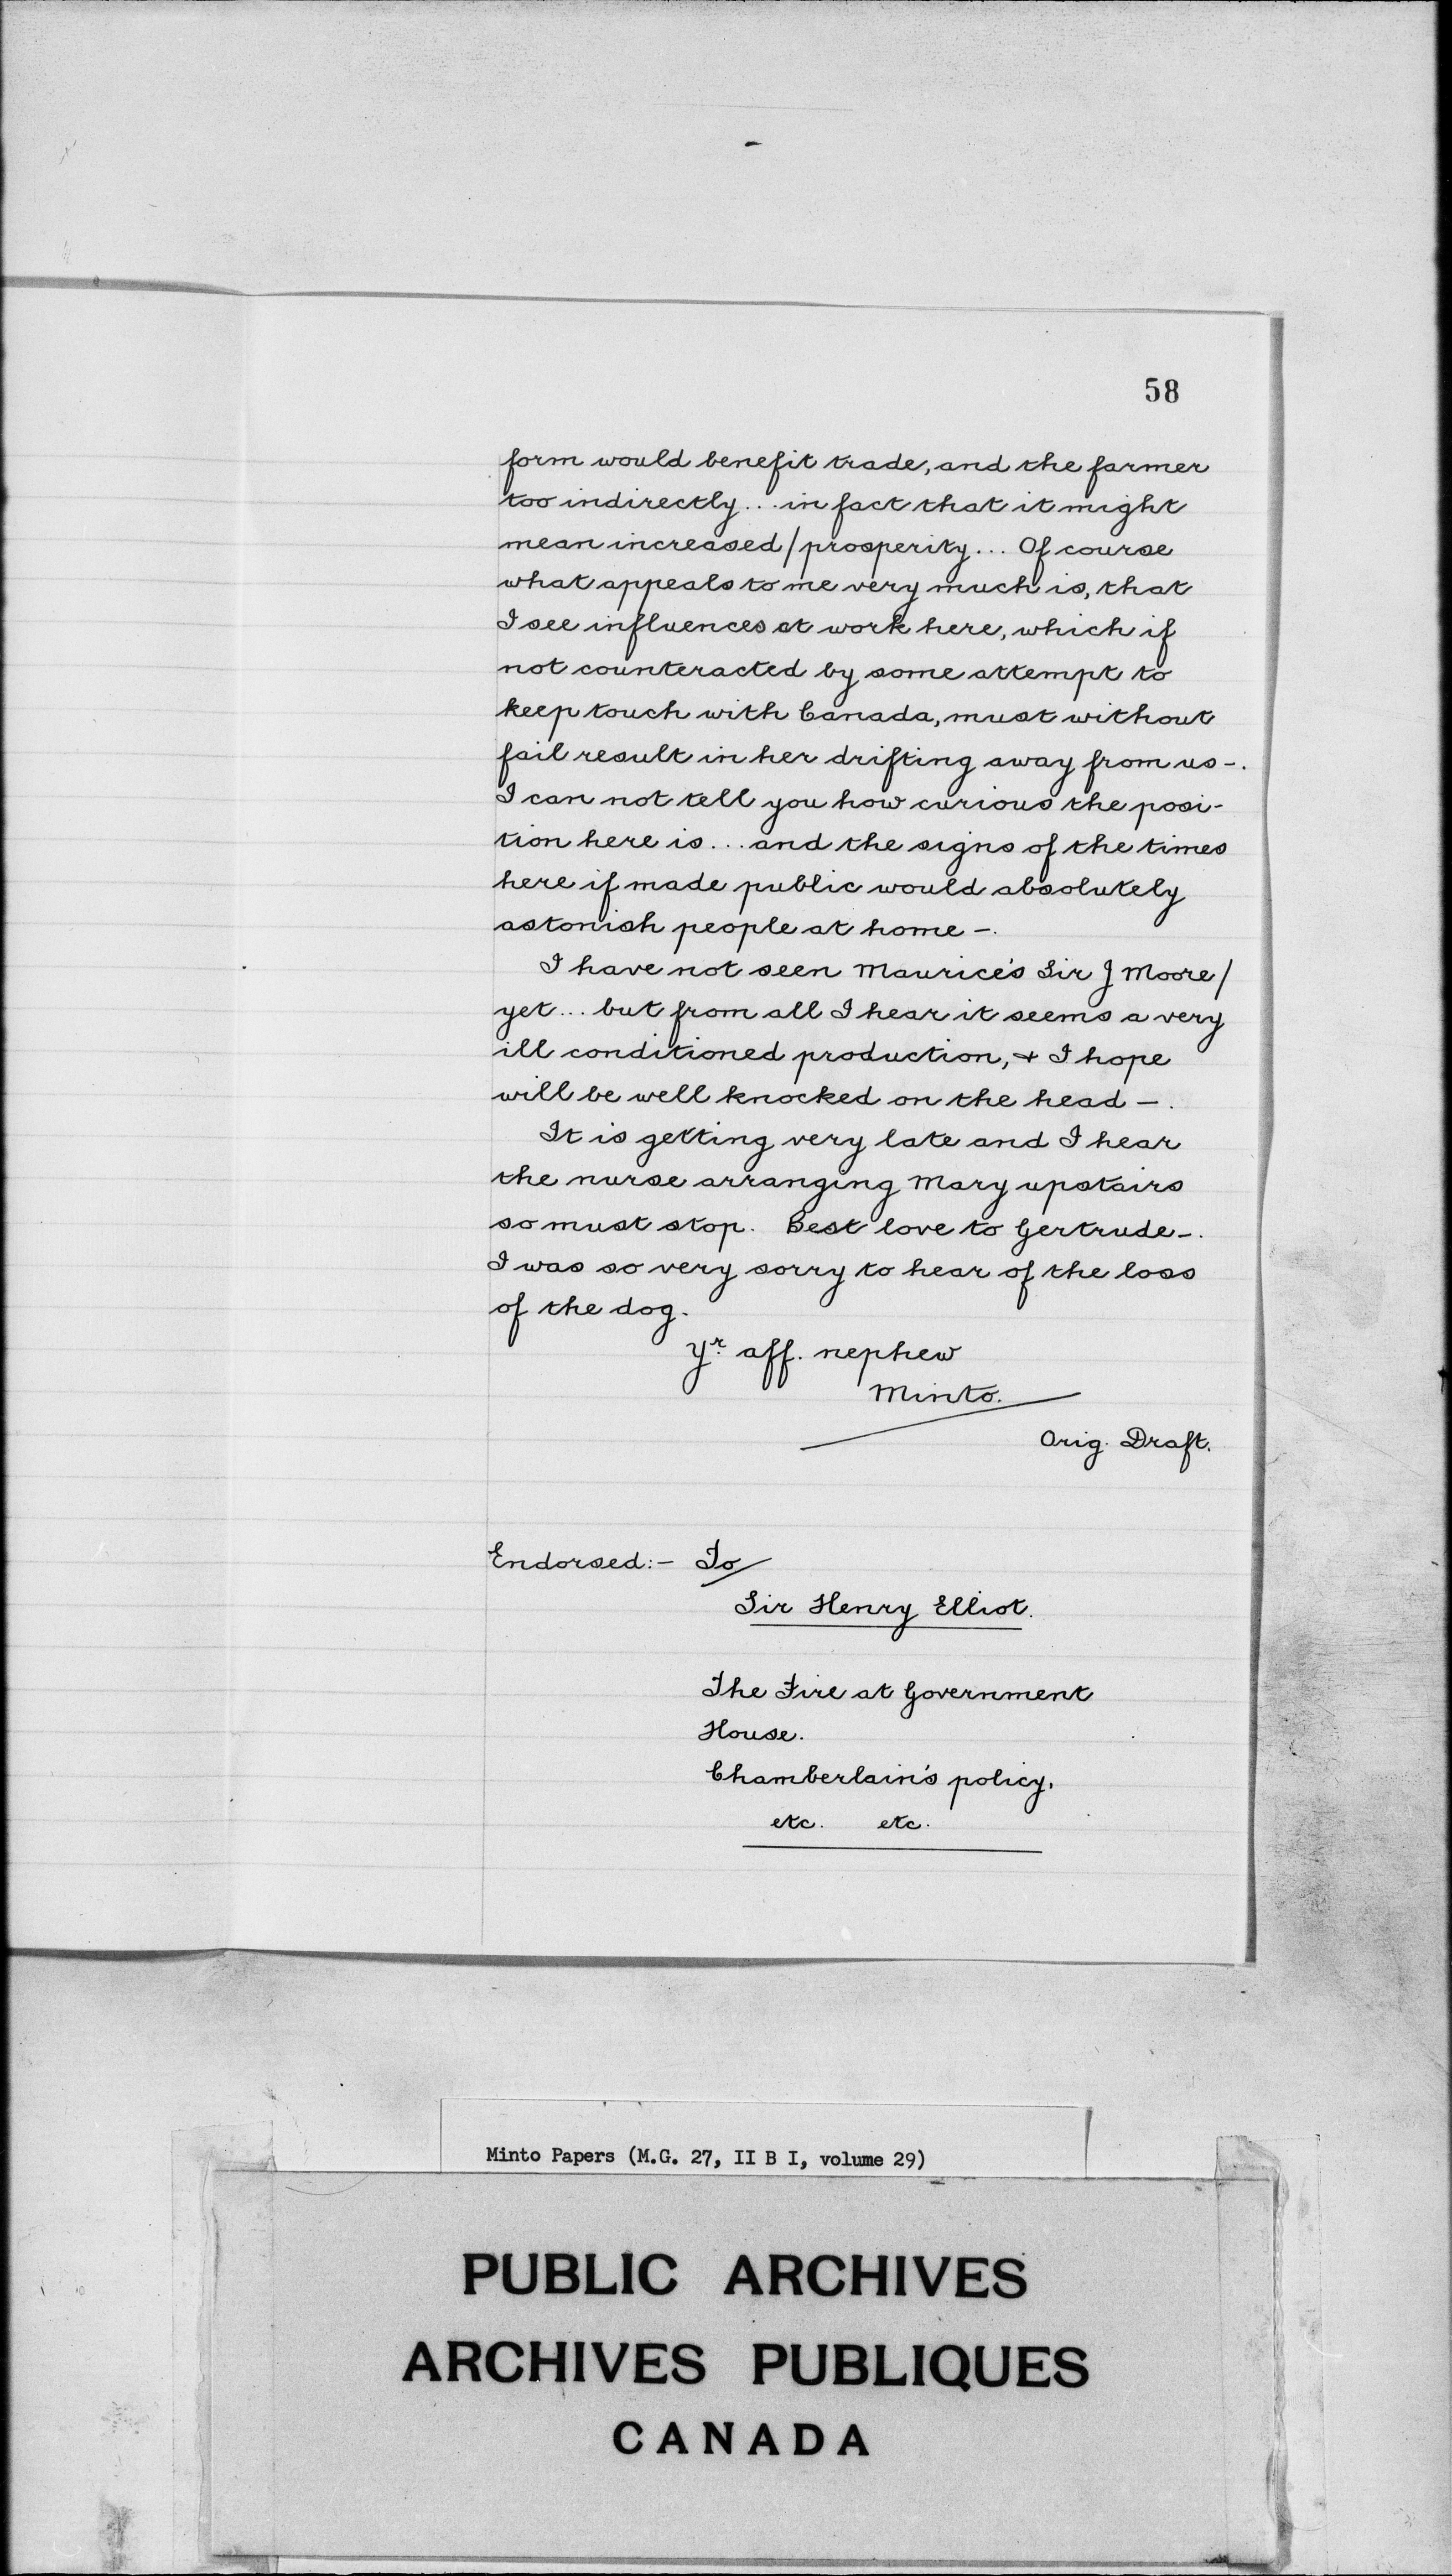 58
form would benefit trade, and the farmer
too indirectly... in fact that it might
mean increased/prosperity... Of course
what appeals to me very much is, that
I see influences at work here, which if
not counteracted by some attempt to
keep touch with Canada, must without
fail result in her drifting away from us-.
I can not tell you how curious the posi-
tion here is... and the signs of the times
here if made public would absolutely
astonish people at home-.
I have not seen Maurice's Sir J Moore/
yet... but from all I hear it seems a very
ill conditioned production, & I hope
will be well knocked on the head-.
It is getting very late and I hear
the nurse arranging Mary upstairs
so must stop. Best love to Gertrude-.
I was so very sorry to hear of the loss
of the dog.
Yr. aff. nephew
Minto.
Orig. Draft.
Endorsed:- To
Sir Henry Elliot.
The Fire at Government
House.
Chamberlain's policy,
etc. etc.
Minto Papers (M.G. 27, II B I, volume 29)
PUBLIC ARCHIVES
ARCHIVES PUBLIQUES
CANADA